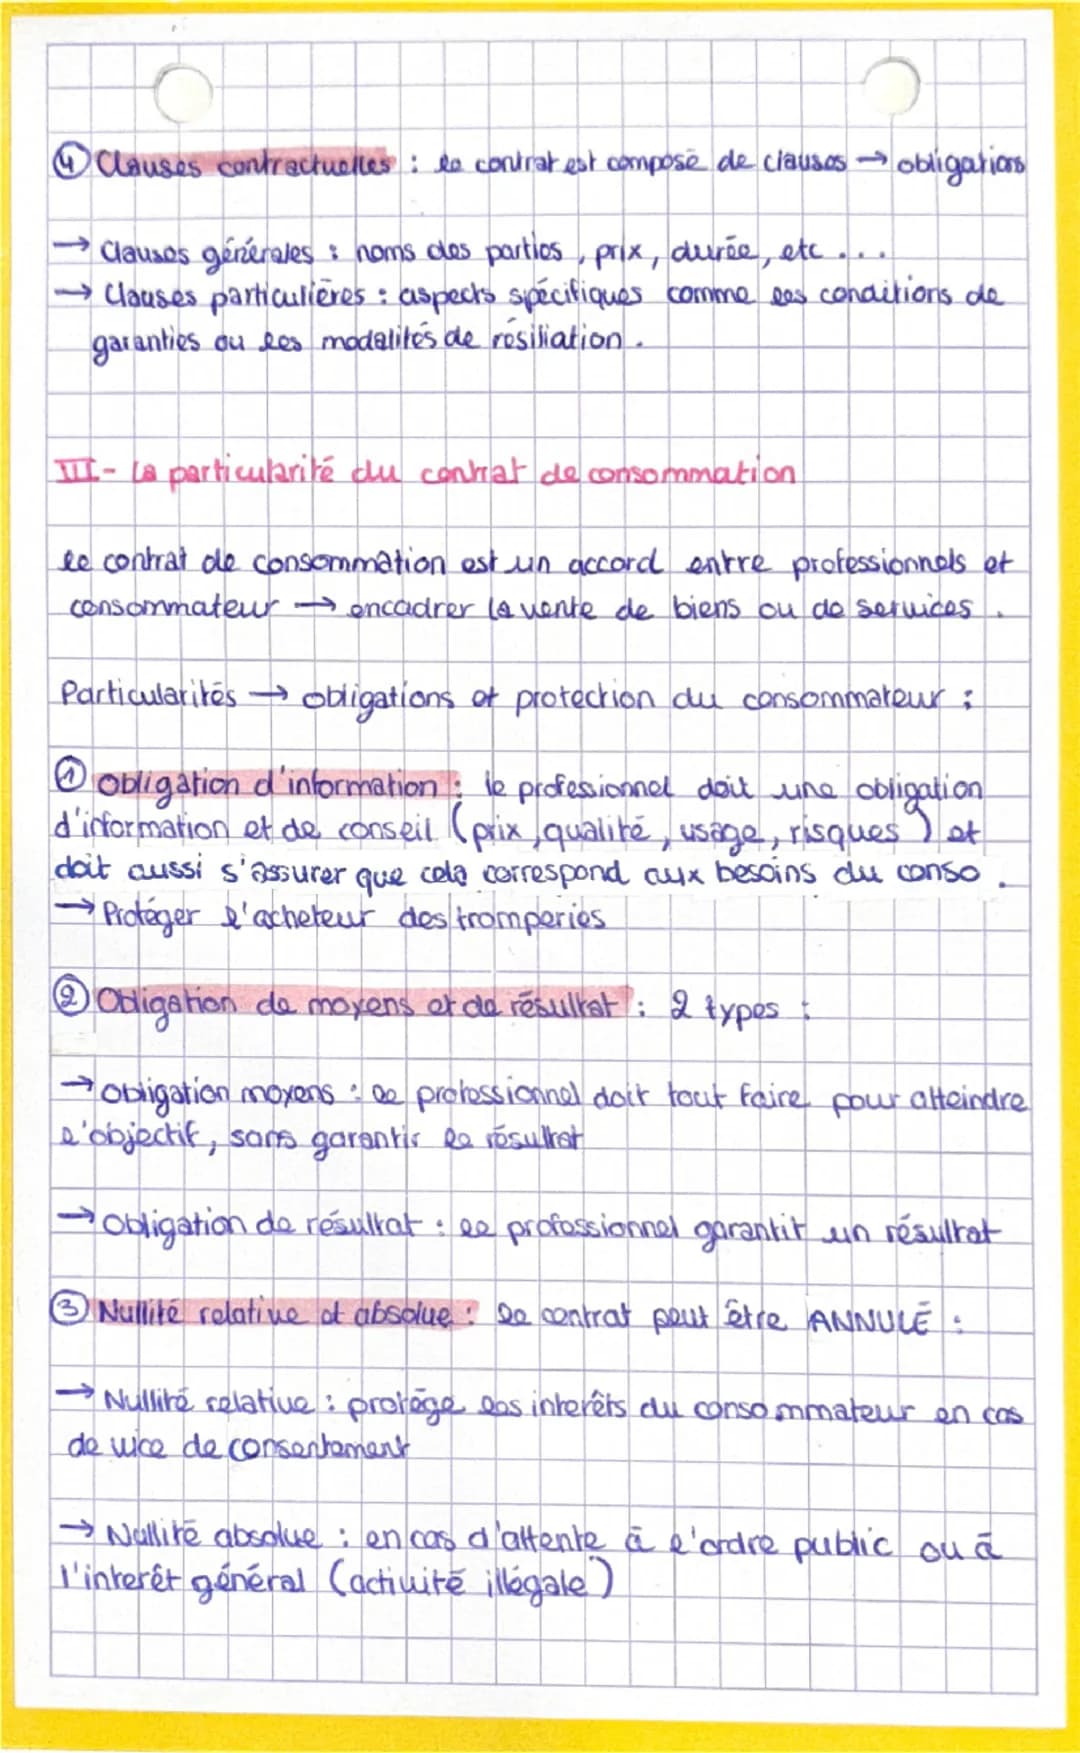 ④ Clauses contractuelles : le contrat est composé de clauses → obligations
→ Clauses générales : noms des parties, prix, durée, etc ...
→ Clauses particulières : aspects spécifiques comme les conditions de
garanties ou les modalités de résiliation.
III - La particularité du contrat de consommation
Le contrat de consommation est un accord entre professionnels et
consommateur → encadrer la vente de biens ou de services.
Particularités → obligations et protection du consommateur :
① Obligation d'information : le professionnel doit une obligation
d'information et de conseil (prix, qualité, usage, risques) et
doit aussi s'assurer que cela correspond aux besoins du conso.
→ Protéger l'acheteur des tromperies
② Obligation de moyens et de résultat : 2 types :
→ Obligation moyens : le professionnel doit tout faire pour atteindre
l'objectif, sans garantir le résultat
→ Obligation de résultat : le professionnel garantit un résultat
③ Nullité relative et absolue : Le contrat peut être ANNULÉ :
→ Nullité relative : protège les interêts du consommateur en cas
de vice de consentement
→ Nullité absolue : en cas d'attente à l'ordre public ou à
l'interêt général (activité illégale)